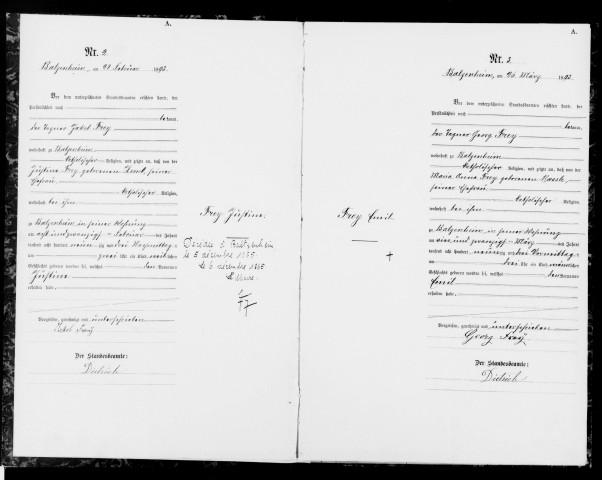 A.
Nr. 2
Balzenheim, am 28 Februar 1893.
Vor dem unterzeichneten Standesbeamten erschien heute, der
Persönlichkeit nach
kannt,
der Tagner Jakob Frey
wohnhaft zu Balzenheim
katholischer Religion, und zeigte an, daß von der
Justina Frey geborenen
seiner
Ehefrau
katholischer Religion,
wohnhaft bei ihm
zu Balzenheim in seiner Wohnung
am acht und zwanzigsten Februar des Jahres
tausend acht hundert neunzig und drei Vormittags
um zwei Uhr ein weibliches
Geschlechts geboren worden sei, welches den Vornamen
Justina
erhalten habe.
Vorgelesen, genehmigt und unterschrieben
Jakob Frey
Der Standesbeamte:
Dietrich
Frey Justina.
Décédée à Baltzenheim
le 5 décembre 1885
Le 6 décembre 1885
A.
Nr. 3.
Balzenheim, am 26. März 1893.
Vor dem unterzeichneten Standesbeamten erschien heute, der
Persönlichkeit nach
kannt,
der Tagner Georg Frey
wohnhaft zu Balzenheim
katholischer Religion, und zeigte an, daß von der
Maria Anna Frey geborenen
seiner Ehefrau
katholischer Religion,
wohnhaft bei ihm
zu Balzenheim in seiner Wohnung
am ein und zwanzigsten März des Jahres
tausend acht hundert neunzig und drei Vormittags
um drei Uhr ein männliches
Geschlechts geboren worden sei, welches den Vornamen
Emil
erhalten habe.
Vorgelesen, genehmigt und unterschrieben
Georg Frey
Der Standesbeamte:
Dietrich
Frey Emil.